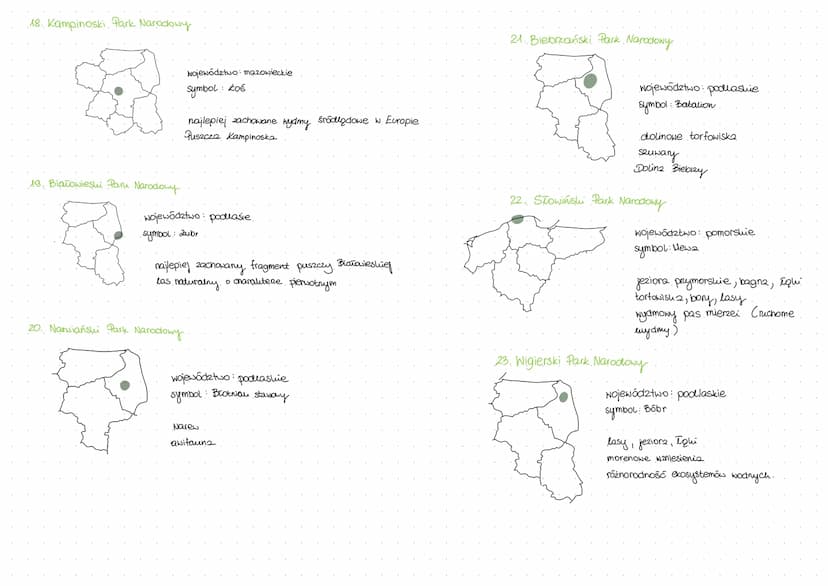 18. Kampinoski Park Narodowy
województwo: mazowieckie
symbol: łoś
najlepiej zachowane wydmy śródlądowe w Europie
Puszcza Kampinoska
19. Białowieski Park Narodowy
województwo: podlasie
symbol: żubr
najlepiej zachowany fragment puszczy Białowieskiej
las naturalny o charakterze pierwotnym
20. Narwiański Park Narodowy
województwo: podlaskie
symbol: Błotniak stawowy
Narew
awifauna
21. Biebrzański Park Narodowy
województwo: podlaskie
symbol: Batalion
dolinowe torfowiska
szuwary
Dolina Biebrzy
22. Słowiński Park Narodowy
województwo: pomorskie
symbol: Mewa
jeziora przymorskie, bagna, łąki
torfowiska, bory, lasy
wydmowy pas mierzei (ruchome
wydmy)
23. Wigierski Park Narodowy
województwo: podlaskie
symbol: Bóbr
lasy, jeziora, łąki
morenowe wzniesienia
różnorodność ekosystemów wodnych.